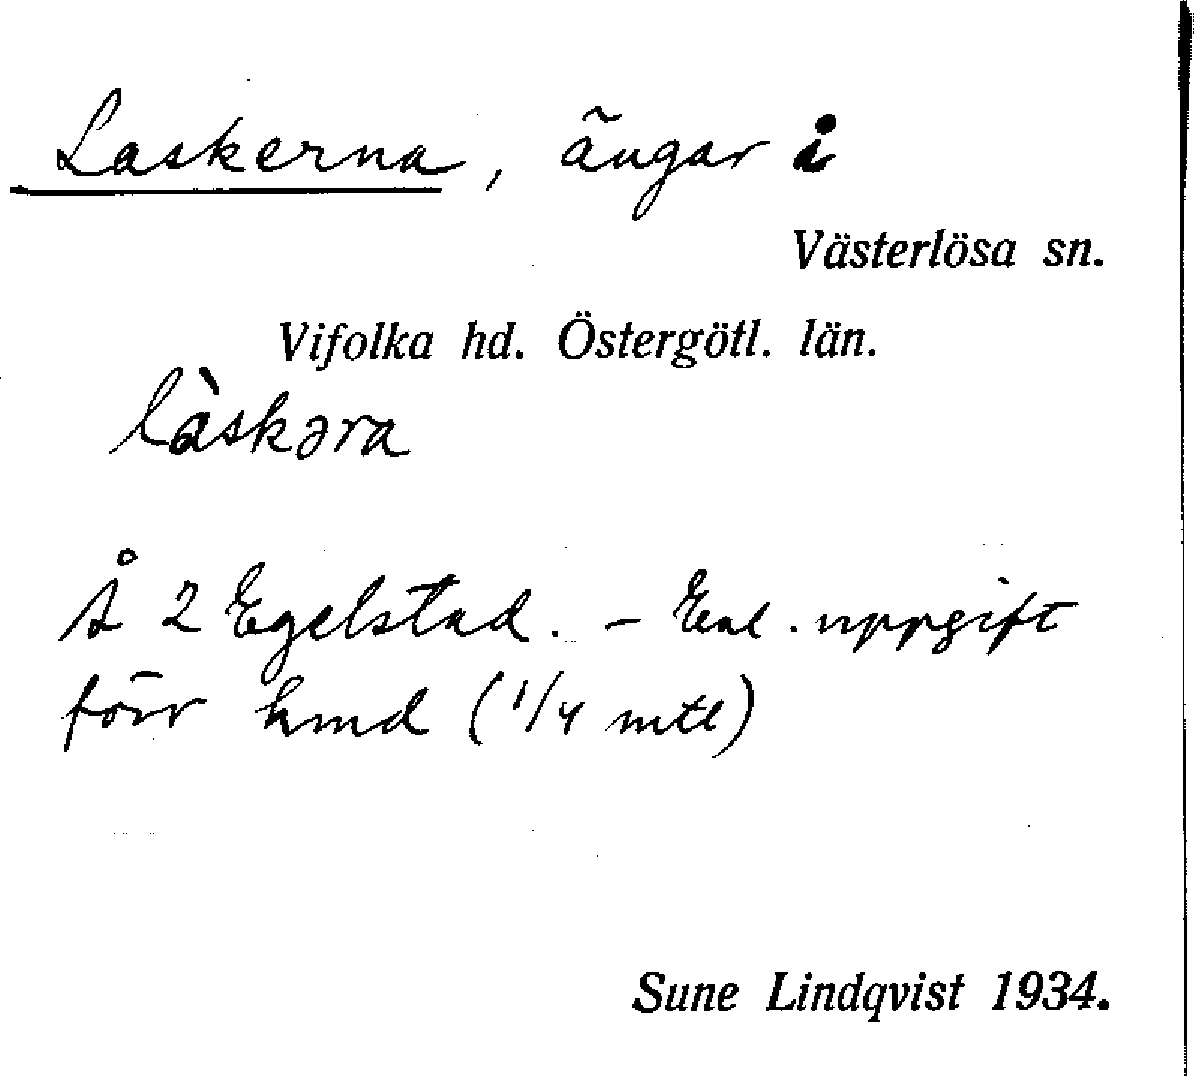 Laskerna, ängar i
Västerlösa sn.
Vifolka hd. Östergötl. län.
làskəra
Å 2 Egelstad. – Enl. uppgift
förr hmd (1/4 mtl)
Sune Lindqvist 1934.